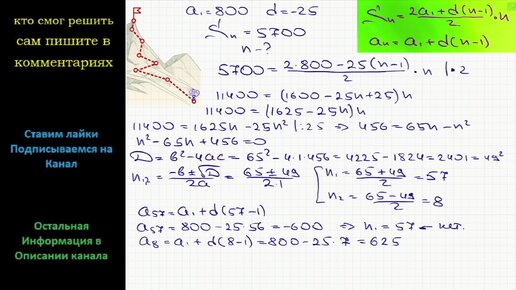 кто смог решить
сам пишите в
комментариях
Ставим лайки
Подписываемся на
Канал
Остальная
Информация в
Описании канала
a₁=800 d=-25
Sₙ=5700
n-?
5700 = (2·800-25(n-1))/2 · n |·2
11400 = (1600-25n+25)n
11400 = (1625-25n)n
11400 = 1625n-25n² |:25 ⇒ 456=65n-n²
n²-65n+456=0
D=b²-4ac=65²-4·1·456=4225-1824=2401=49²
n₁,₂ = (-b±√D)/2a = (65±49)/2·1 [ n₁ = (65+49)/2 = 57
n₂ = (65-49)/2 = 8
a₅₇=a₁+d(57-1)
a₅₇=800-25·56=-600 ⇒ n₁=57 - нет.
a₈=a₁+d(8-1)=800-25·7=625
Sₙ = (2a₁+d(n-1))/2 · n
aₙ=a₁+d(n-1)